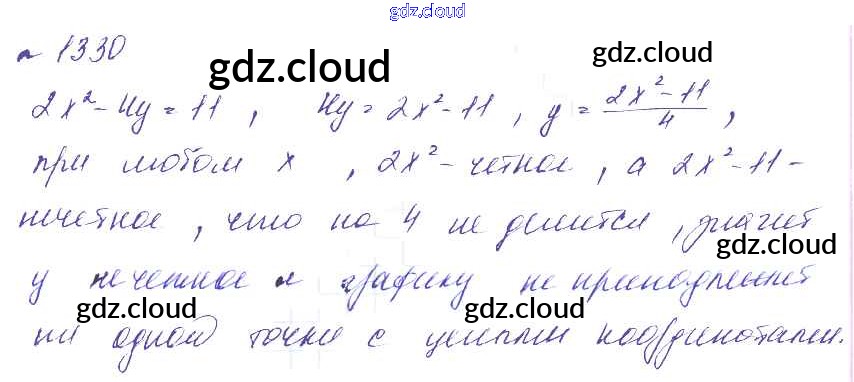 gdz.cloud
gdz.cloud
№ 1330
gdz.cloud
gdz.cloud
2x² - 4y = 11, 4y = 2x² - 11, y = \frac{2x² - 11}{4},
при любом x, 2x² - четное, а 2x² - 11 -
нечетное, что на 4 не делится, значит
gdz.cloud
у не четное и графику не принадлежит
gdz.cloud
gdz.cloud
ни одной точки с целыми координатами.
gdz.cloud